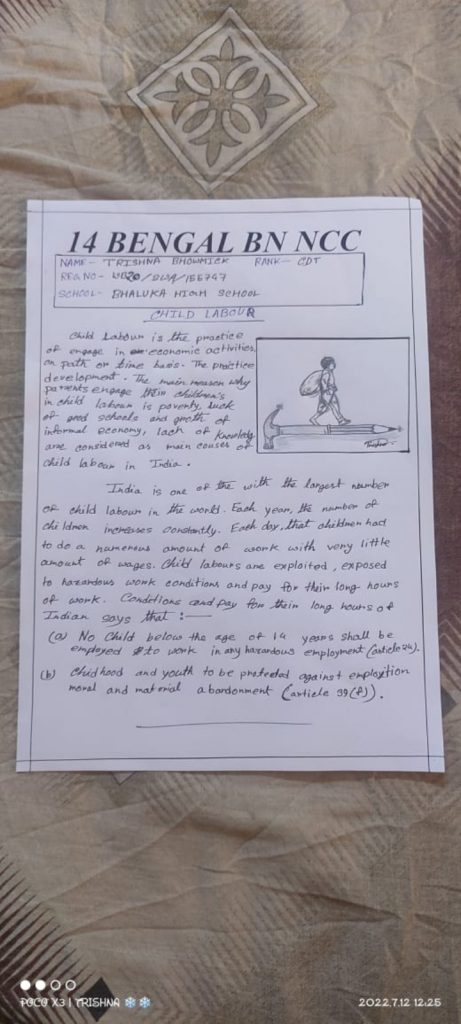 14 BENGAL BN NCC
NAME- TRISHNA BHOWMICK RANK- CDT
REG NO- WB20/SWA/155747
SCHOOL- BHALUKA HIGH SCHOOL
CHILD LABOUR
Child Labour is the practice
of engage in economic activities,
on path or time basis. The practice
development. The main reason why
parents engage their children's
in child labour is poverty, luck
of good schools and groth of
informal economy, lack of knowledg
are considered as main causes of
child labour in India.
Trisha
India is one of the with the largest number
of child labour in the world. Each year, the number of
children increases constantly. Each day, that children had
to do a numerous amount of work with very little
amount of wages. Child labours are exploited, exposed
to hazardous work conditions and pay for their long hours
of work. Conditions and pay for their long hours of
Indian says that :—
(a) No Child below the age of 14 years shall be
employed to work in any hazardous employment (article 24).
(b) Childhood and youth to be protected against employtion
moral and material abordonment (article 39(f)).
POCO X3 | TRISHNA ❄❄
2022.7.12 12:25